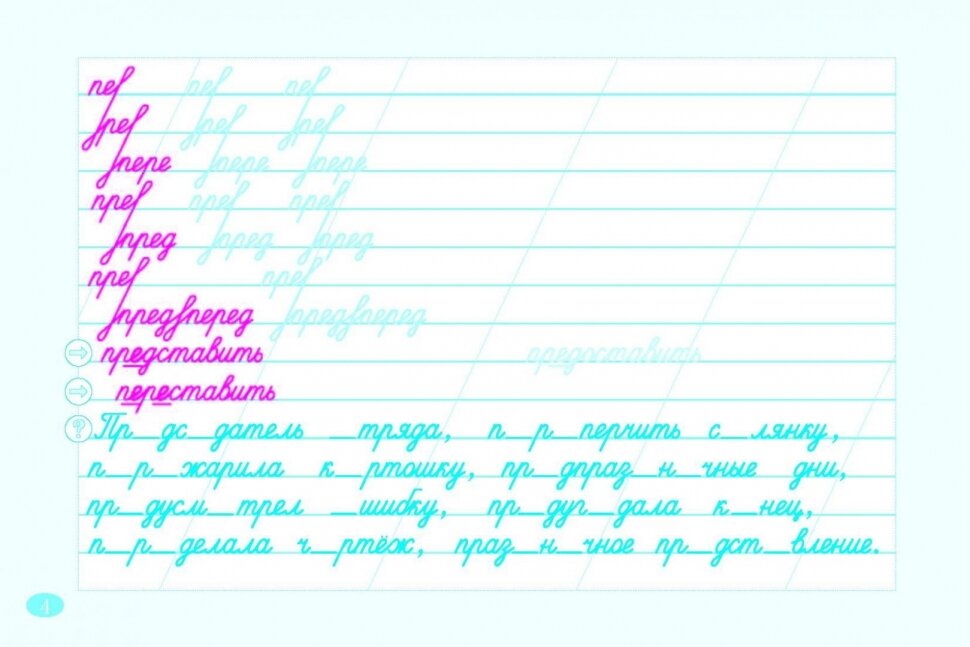 пе пе пе
ре ре ре
пере пере пере
пре пре пре
пред пред пред
пре пре
предперед предперед
представить представить
переставить
? Пр_дс_датель _тряда, п_р_перчить с_лянку,
п_р_жарила к_ртошку, пр_дпраз_н_чные дни,
пр_дусм_трел _шибку, пр_дуг_дала к_нец,
п_р_делала ч_ртёж, праз_н_чное пр_дст_вление.
4